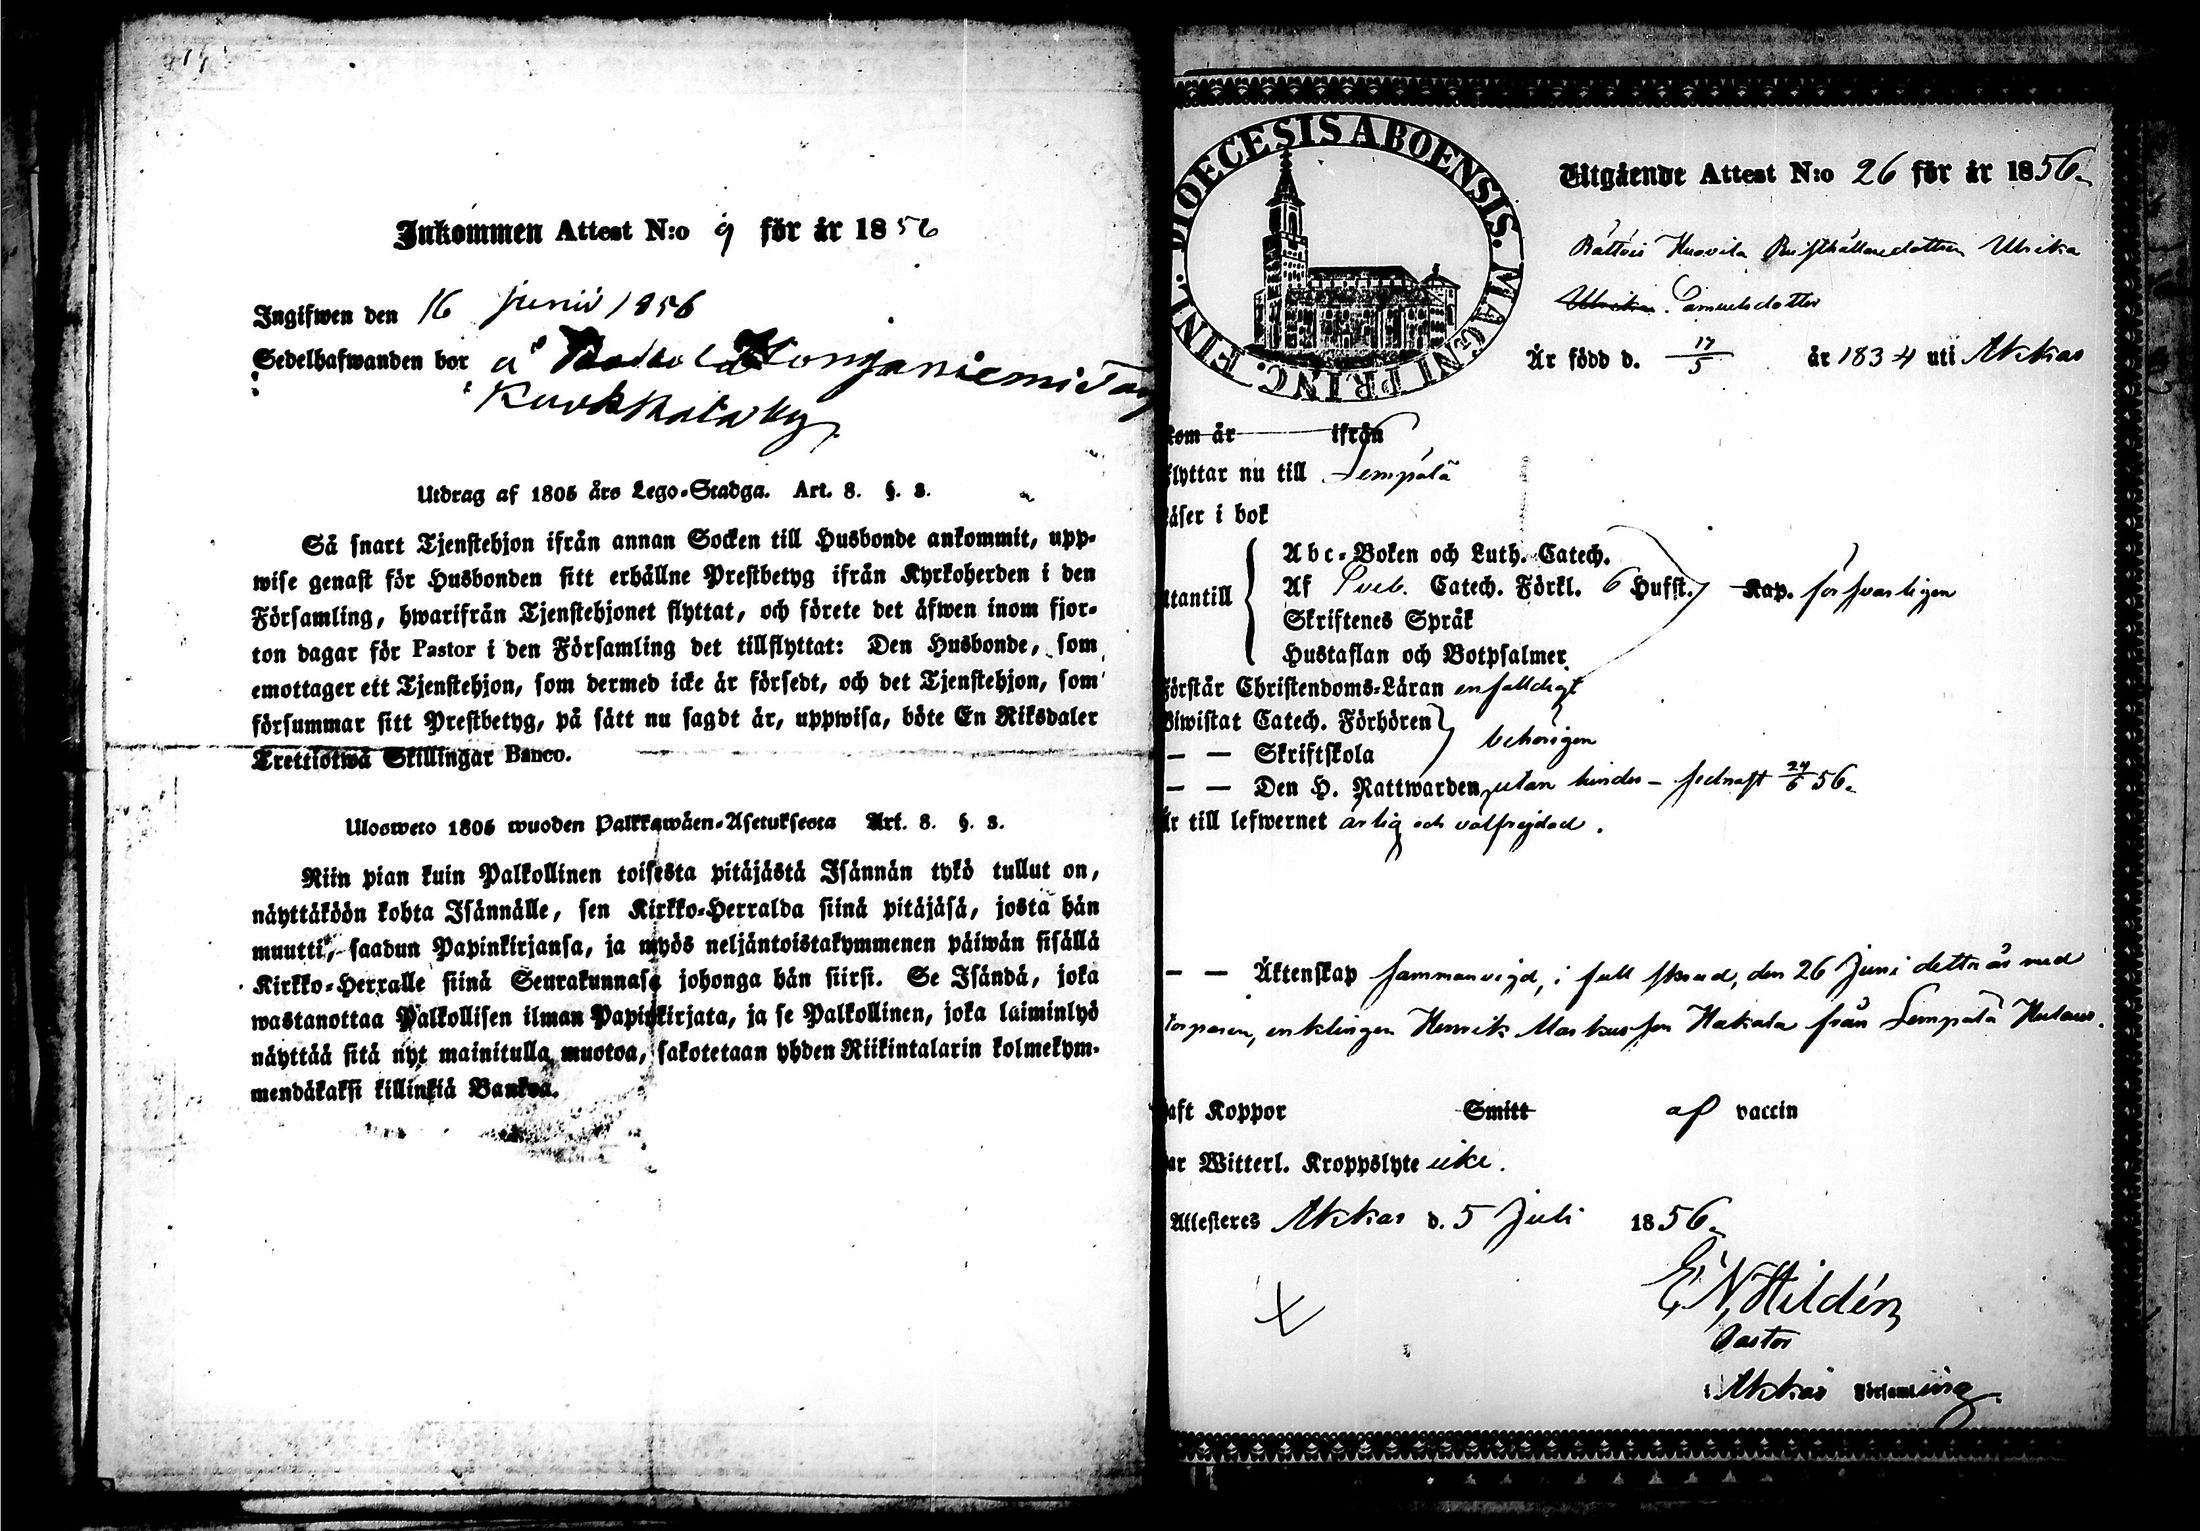 Inkommen Attest N:o 9 för år 1856
Ingifwen den 16 Junii 1856
Sedelhafwanden bor å Konganiemi
Kuokkala by
Utdrag af 1805 års Lego-Stadga. Art. 8. §. 3.
Så snart Tjenstehjon ifrån annan Socken till Husbonde ankommit, upp-
wise genast för Husbonden sitt erhållne Prestbetyg ifrån Kyrkoherden i den
Församling, hwarifrån Tjenstehjonet flyttat, och förete det äfwen inom fjor-
ton dagar för Pastor i den Församling det tillflyttat: Den Husbonde, som
emottager ett Tjenstehjon, som dermed icke är försedt, och det Tjenstehjon, som
försummar sitt Prestbetyg, på sätt nu sagdt är, uppwisa, böte En Riksdaler
Trettiotwå Skillingar Banco.
Uloswето 1805 wuoden Palkkawäen-Asetuksesta Art. 8. §. 3.
Niin pian kuin Palkollinen toisesta pitäjästä Isännän tykö tullut on,
näyttäköön kohta Isännälle, sen Kirkko-Herralda siinä pitäjäsä, josta hän
muutti, saadun Papinkirjansa, ja myös neljäntoistakymmenen päiwän sisällä
Kirkko-Herralle siinä Seurakunnasa johonga hän siirsi. Se Isändä, joka
wastanottaa Palkollisen ilman Papinkirjata, ja se Palkollinen, joka laiminlyö
näyttää sitä nyt mainitulla muotoa, sakotetaan yhden Riikintalarin kolmekym-
mendäkaksi killinkiä Bankoa.
FINL. DIOECESIS ABOENSIS. MAGNI PRINC.
Utgående Attest N:o 26 för år 1856.
Rusthållaredottren Ulrika
Ulrika Samuelsdotter
Är född d. 17/5 år 1834 uti Akkas
kom år ifrån
flyttar nu till Lempälä
Läser i bok
utantill
Abc-Boken och Luth. Catech.
Af Sveb. Catech. Förkl. 6 Hufst. Kap. försvarligen
Skriftenes Språk
Hustaflan och Botpsalmer
Förstår Christendoms-Läran enfaldigt
Biwistat Catech. Förhören
— — Skriftskola behörigen
— — Den H. Nattwarden utan hinder – sednast 24/6 56.
Är till lefwernet ärlig och välfrejdad.
— — Äktenskap sammanvigd, i full skrud, den 26 Juni detta år med
torparen, enklingen Henrik Markusson Hakala från Lempälä
haft Koppor Smitt af vaccin
har Witterl. Kroppslyte icke.
Attesteres Akkas d. 5 Juli 1856.
E. N. Hildén
Pastor
i Akkas Församling.